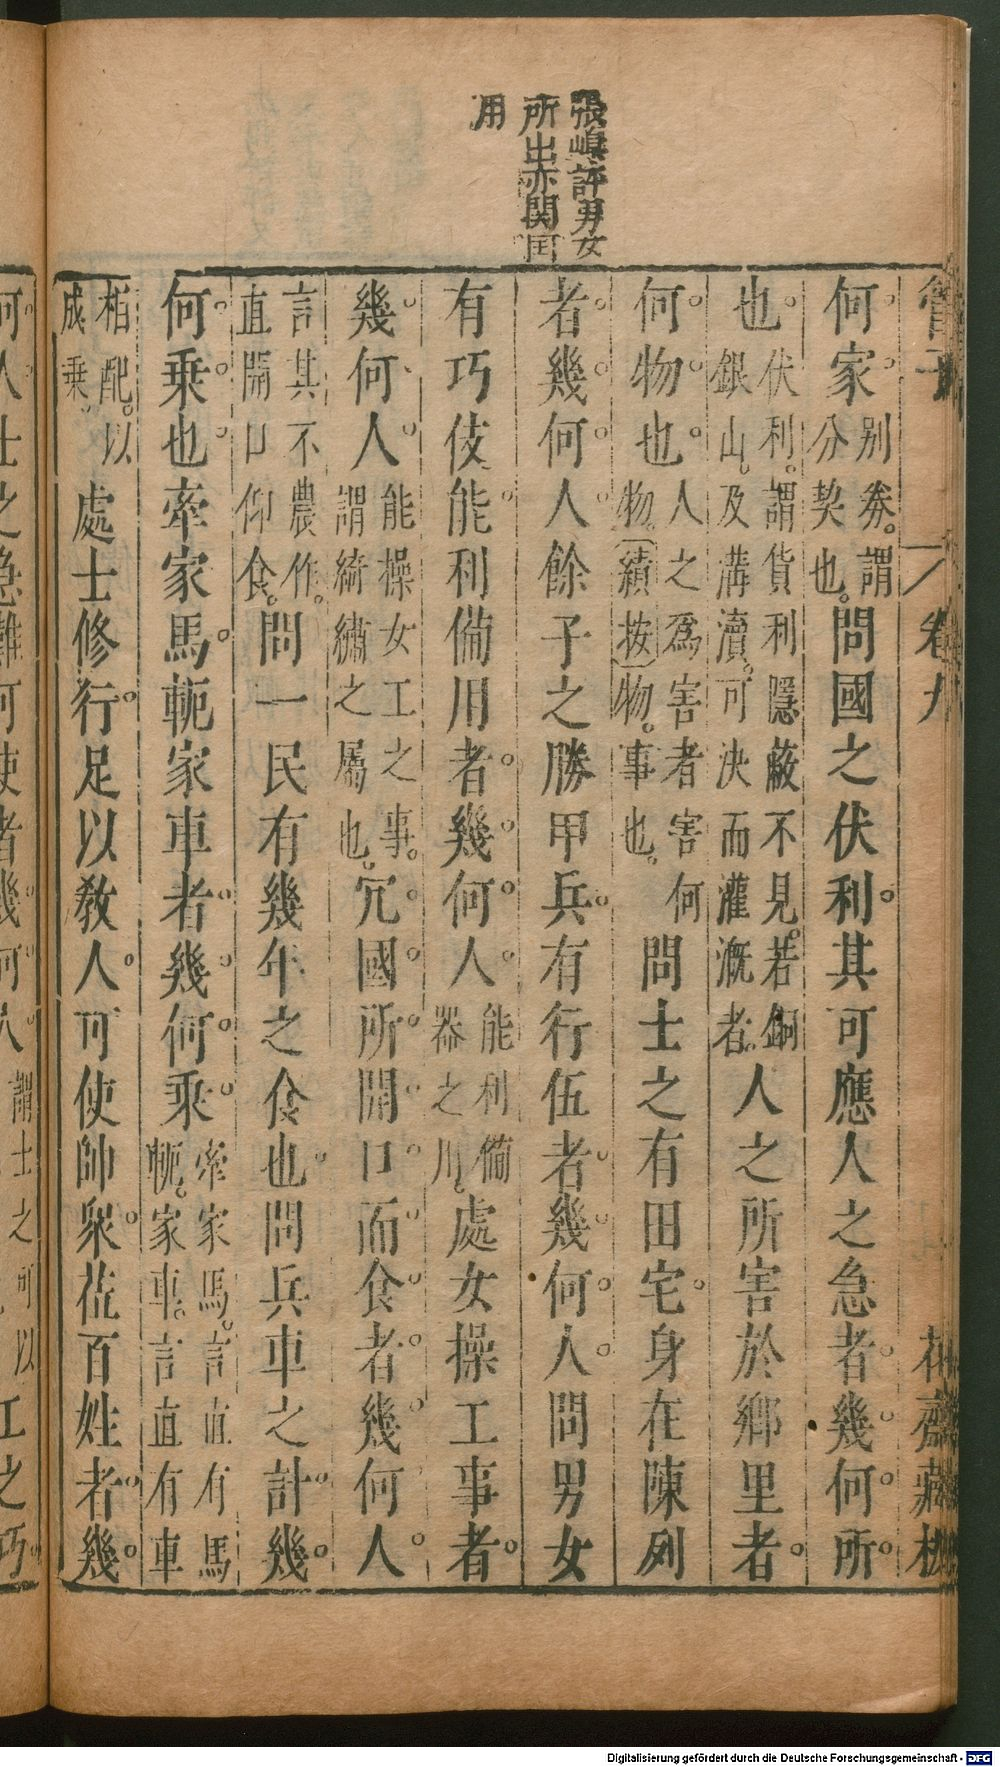 張嵲評男女
所出亦関
用
管子 卷九 花齋藏板
何家別券謂分契也問國之伏利其可應人之急者幾何所
也伏利謂貨利隱蔽不見若銅銀山及溝瀆可決而灌漑者人之所害於鄉里者
何物也人之爲害者害何物續按物事也問士之有田宅身在陳列
者幾何人餘子之勝甲兵有行伍者幾何人問男女
有巧伎能利備用者幾何人能利備器之用處女操工事者
幾何人能操女工之事謂綺繡之屬也冗國所開口而食者幾何人
言其不農作直開口仰食問一民有幾年之食也問兵車之計幾
何乘也牽家馬軛家車者幾何乘牽家馬言直有馬軛家車言直有車
相配以成乘處士修行足以敎人可使帥衆莅百姓者幾
何人士之急難可使者幾何人謂士之可以工之巧
Digitalisierung gefördert durch die Deutsche Forschungsgemeinschaft - DFG